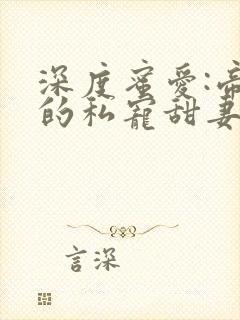 深度蜜愛:帝
的私寵甜妻
言深